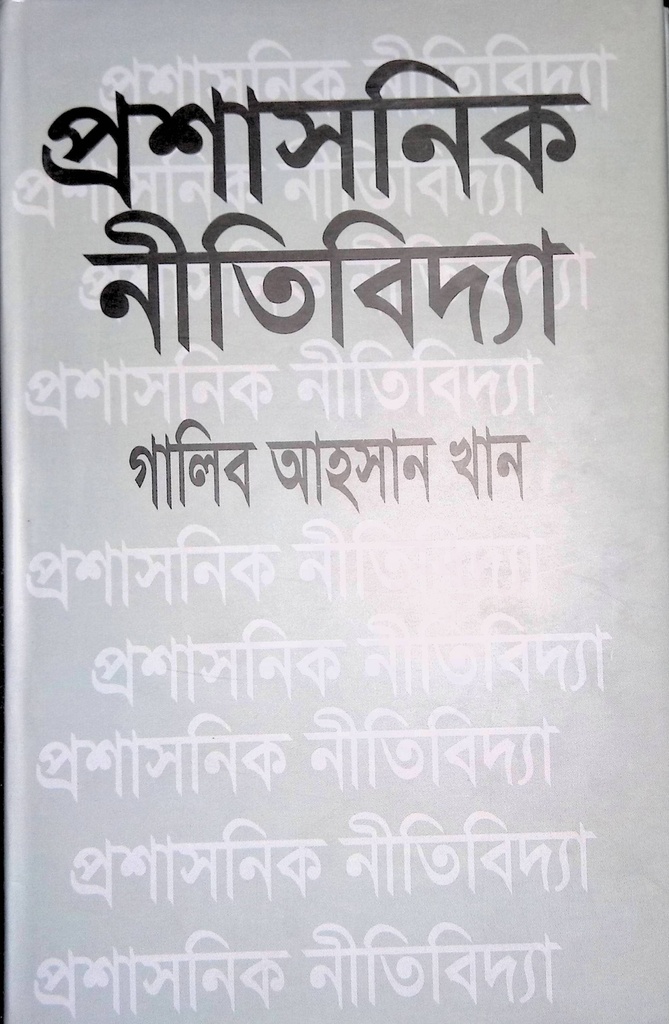 প্রশাসনিক নীতিবিদ্যা
প্রশাসনিক
প্রশাসনিক নীতিবিদ্যা
নীতিবিদ্যা
প্রশাসনিক নীতিবিদ্যা
প্রশাসনিক নীতিবিদ্যা
গালিব আহসান খান
প্রশাসনিক নীতিবিদ্যা
প্রশাসনিক নীতিবিদ্যা
প্রশাসনিক নীতিবিদ্যা
প্রশাসনিক নীতিবিদ্যা
প্রশাসনিক নীতিবিদ্যা